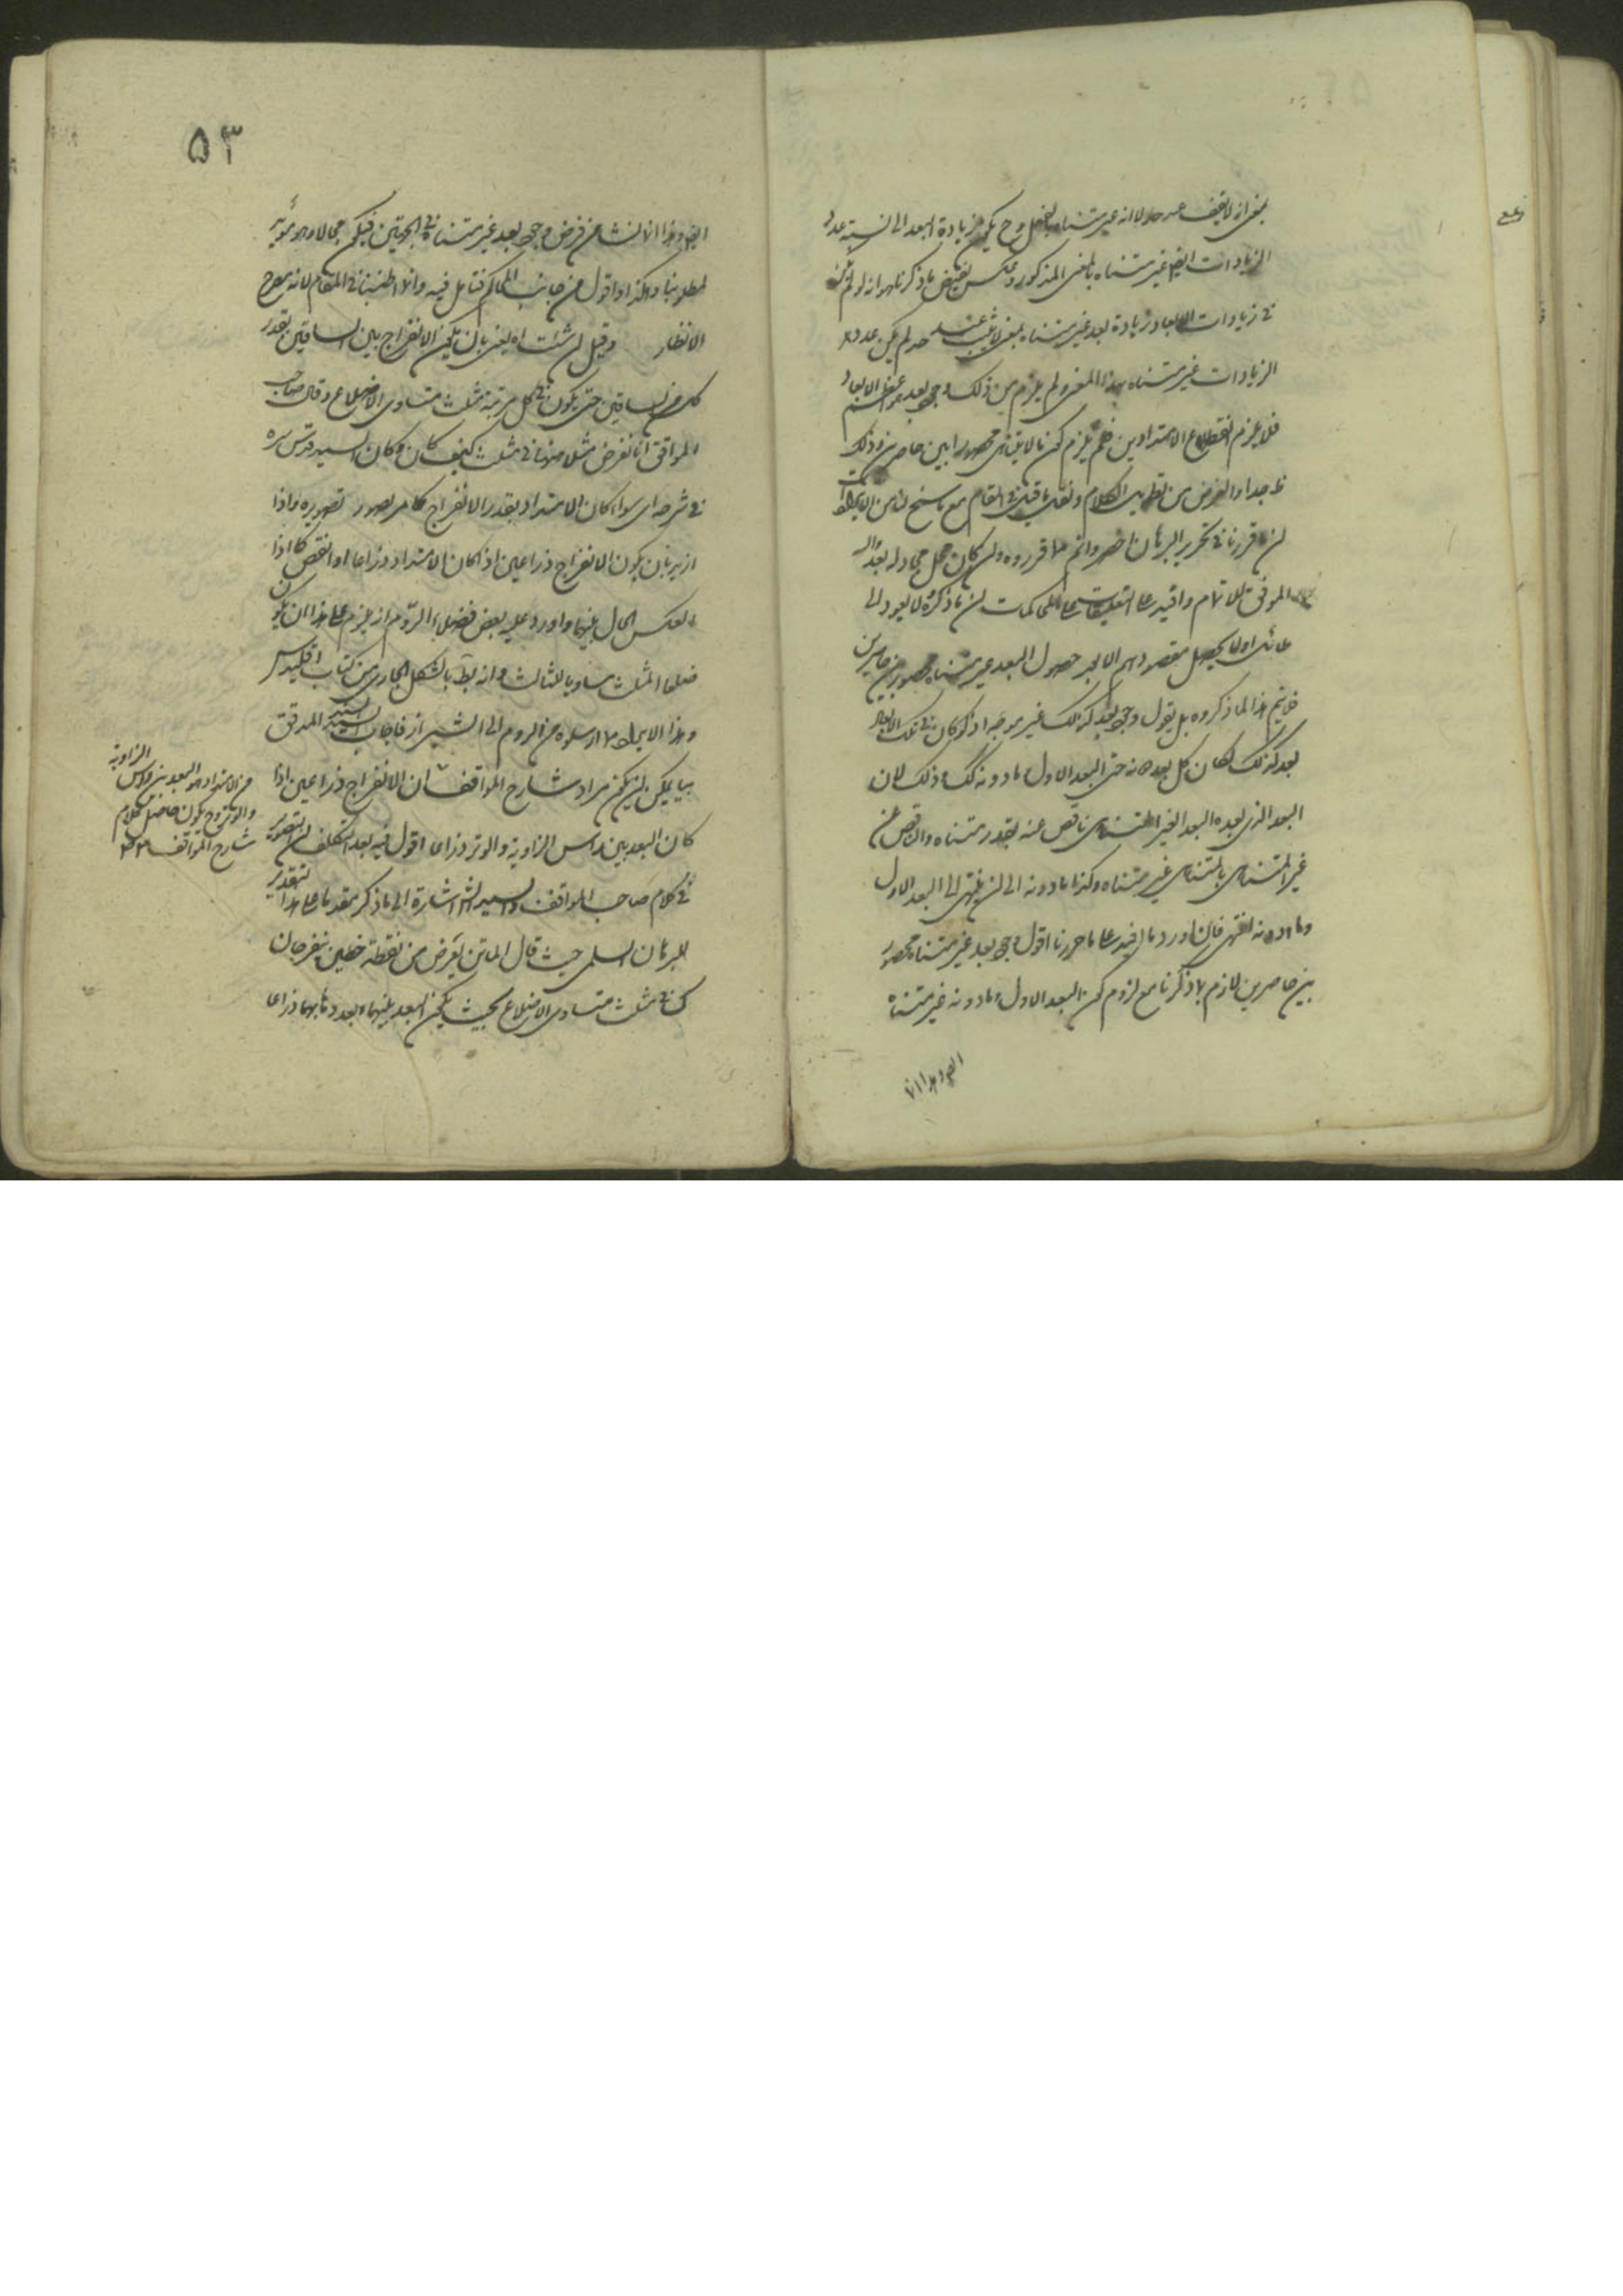 بمعنى انه لا يقف عند حد لا انه غير متناه بالفعل وح يكون زيادة البعد الى نسبة عدد
الزيادات ايضا غير متناه بالمعنى المذكور وعكس نقيض ما ذكرنا هو انه لو لم يكن
في زيادات الابعاد زيادة بعد غير متناه بمعنى لا يقف عند حد لم يكن عدد
الزيادات غير متناه بهذا المعنى ولم يلزم من ذلك وجود بعد هو اعظم الابعاد
فلا يلزم انقطاع الامتدادين فلم يلزم كون ما لا يتناهى محصورا بين حاصرين وذلك
ظ جدا والغرض من الكلام ونقل ما قيل في المقام مع ما سنح لنا من الابحاث
ان ما قررنا في تحرير البرهان اخصر واتم مما قرروه وان كان محل مجادلة بعد والله
الموفق للاتمام واقيد على المحاكمات ان ما ذكره لا يعود الى
طائل اولا يحصل مقصودهم الا بعد حصول البعد غير متناه محصور بين حاصرين
فلا يتم هذا لما ذكروه بل يقول وجود بعد كذلك غير موجه اذ لو كان في تلك الابعاد
بعد كذلك لكان كل بعد دونه حتى البعد الاول وما دونه كك وذلك لان
البعد الذي بعده البعد الغير المتناهى ناقص عنه بقدر متناه والناقص من
غير المتناهى بالمتناهى غير متناه وكذا ما دونه الى ان ينتهى الى البعد الاول
وما دونه انتهى فان اورد ما افيد على ما حررنا اقول وجود بعد غير متناه محصور
بين حاصرين لازم لما ذكرنا مع لزوم كون البعد الاول وما دونه غير متناه
ايضا وهذا انما
٥٣
ايضا وهذا انما نشا من فرض وجود بعد غير متناه في الجهتين فيكون محالا وهو مؤيد
لمطلوبنا وهكذا اقول من جانب المحاكم فتامل فيه وانما اطنبنا في المقام لانه مطرح
الانظار قوله وقيل ان شئت اه يعنى بان يكون الانفراج بين الساقين بقدر
كل من الساقين حتى يكون في كل مرتبة مثلث متساوى الاضلاع وقال صاحب
المواقف انا نفرض مثلا في مثلث كيف كان وكان السيد قدس سره
في شرحه اى سواء كان الامتداد بقدر الانفراج كما مر تصويره واذا
ازيد بان يكون الانفراج ذراعين اذا كان الامتداد ذراعا او انقص كما اذا
انعكس الحال بينهما واورد عليه بعض فضلاء الروم انه يلزم على هذا ان يكون
ضلعا المثلث مساويا للثالث وانه بط بالشكل الحمارى من كتاب اقليدس
وهذا الايراد مما ارسلوه من الروم الى الشيراز فاجاب السيد السند المدقق
بما يمكن ان يكون مراد شارح المواقف ان الانفراج ذراعين اذا
كان البعد بين راس الزاوية والوتر ذراعا اقول فيه بعد التكلف ان التصوير
في كلام صاحب المواقف والسيد الش اشارة الى ما ذكر مقدما على هذا التقدير
للبرهان السلمى حيث قال الماتن نفرض من نقطة خطين ينفرجان
كساقى مثلث متساوى الاضلاع بحيث يكون البعد بينهما بعد ذهابهما ذراعا
من الامتداد هو البعد بين راس الزاوية
والوتر وح يكون حاصل كلام
شارح المواقف